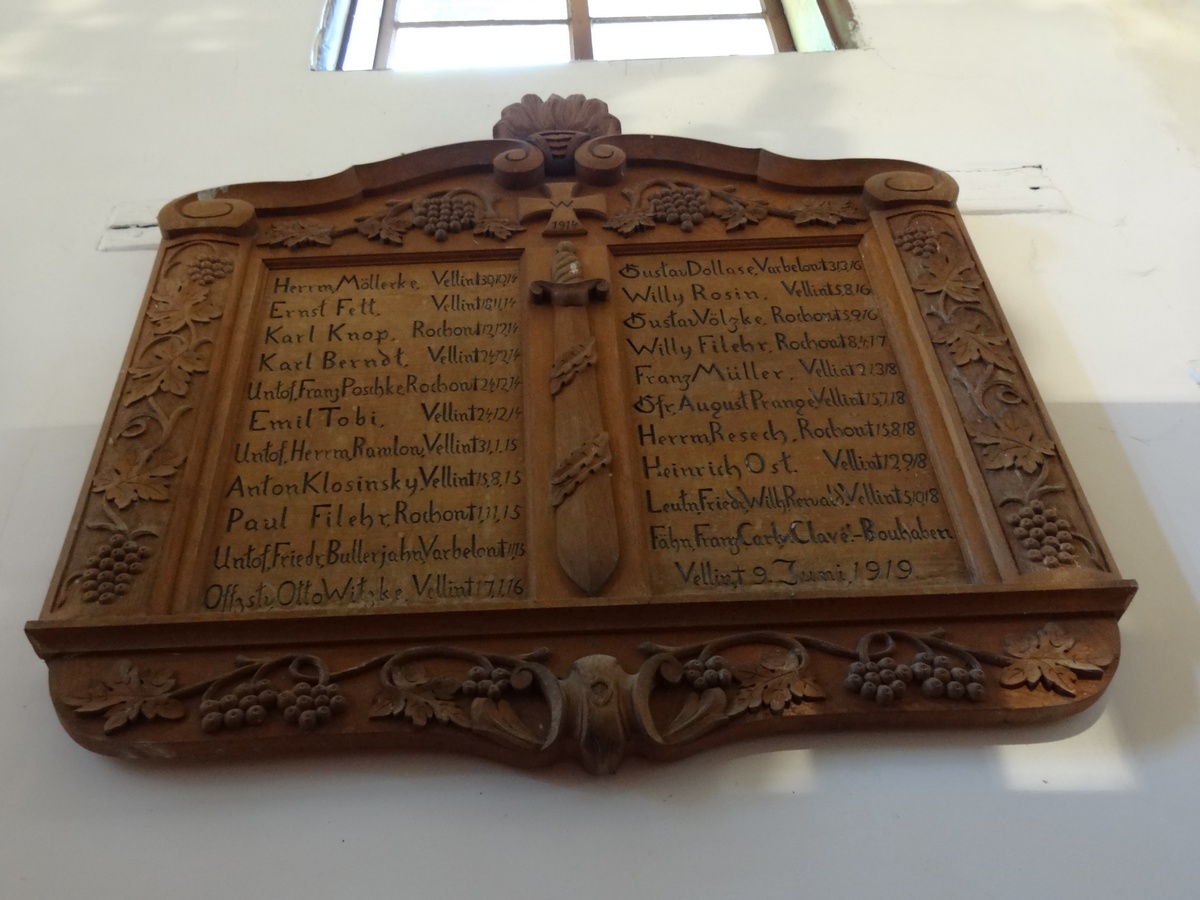 W
1914
Herrm, Möllerke, Vellin,†30,10,14
Ernst Fett, Vellin,†18,11,14
Karl Knop, Rochow,†12,12,14
Karl Berndt, Vellin,†24,12,14
Untof, Franz Poschke, Rochow,†24,12,14
Emil Tobi, Vellin,†24,12,14
Untof, Herrm, Ramlow, Vellin,†31,1,15
Anton Klosinsky, Vellin,†15,8,15
Paul Filehr, Rochow,†1,11,15
Untof, Friedr, Bullerjahn, Varbelow,†1,1,15
Offzstv, Otto Witzke, Vellin,†17,1,16
Gustav Dollase, Varbelow,†31,3,16
Willy Rosin, Vellin,†5,8,16
Gustav Völzke, Rochow,†5,9,16
Willy Filehr, Rochow,†8,4,17
Franz Müller, Vellin,†21,3,18
Gfr, August Prange, Vellin,†15,7,18
Herrm, Resech, Rochow,†15,8,18
Heinrich Ost, Vellin,†12,9,18
Leutn, Friedr, Wilh, Vellin,†5,10,18
Fähn, Franz Carl, v, Clavé-Bouhaben
Vellin,† 9. Juni, 1919